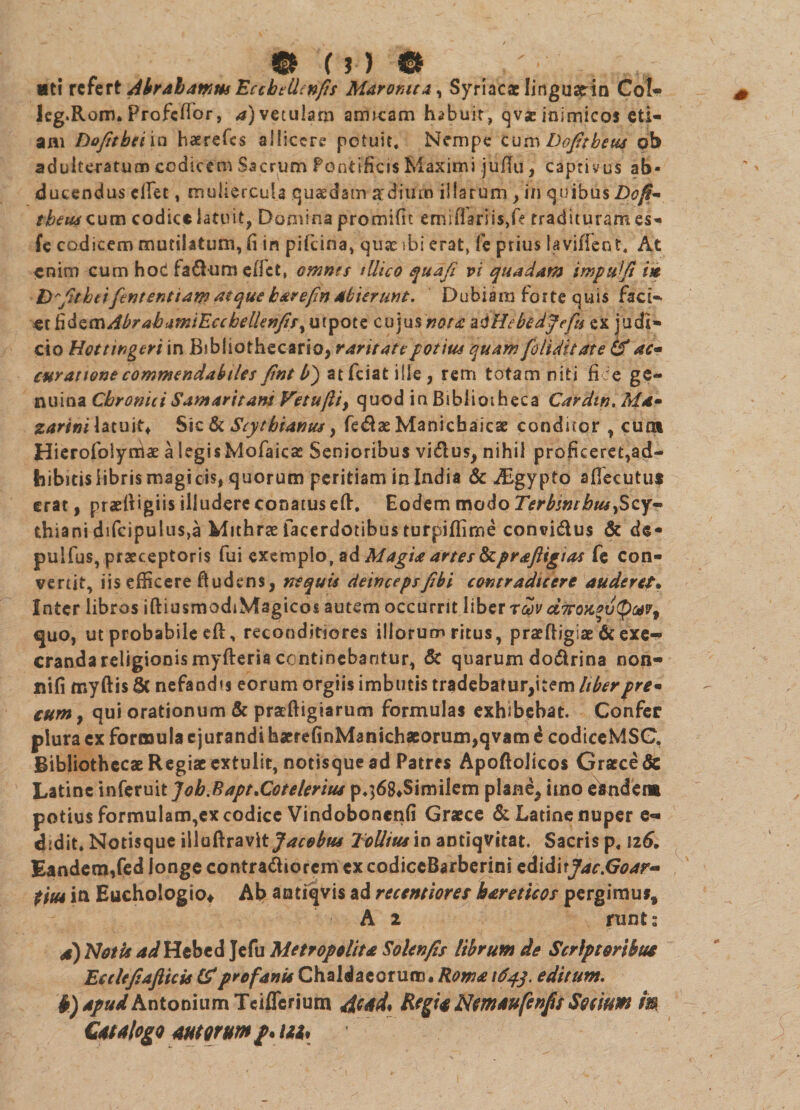 ( 3 )
uti refert Abrahamus Ecchellensis Maronita, Syriacæ linguæ in Col-
leg. Rom. Professor, a) vetulam amicam habuit, qvæ inimicos eti-
am Dosithei in hæreses allicere potuit. Nempe cum Dositheus ob
adulteratum codicem Sacrum Pontificis Maximi jussu, captivus ab-
ducendus esset, muliercula quædam ædium illarum, in quibus Dosi-
theus cum codice latuit, Domina promisit emissariis, se tradituram es-
se codicem mutilatum, si in piscina, quæ ibi erat, se prius lavissent. At
enim cum hoc factum esset, omnes illico quasi vi quadam impulsi in
Dosithei sententiam atque hæresin abierunt. Dubiam forte quis faci-
et fidem Abrahami Ecchellensis, utpote cujus notæ ad Hebedjesu ex judi-
cio Hottingeri in Bibliothecario, raritate potius quam soliditate & ac-
curatione commendabiles sint b) at sciat ille, rem totam niti fide ge-
nuina Chronici Samaritani Vetusti, quod in Bibliotheca Cardin. Ma-
zarini latuit. Sic & Scythianus, sectæ Manichaicæ conditor, cum
Hierosolymæ à legis Mosaicæ Senioribus victus, nihil proficeret, ad-
hibitis libris magicis, quorum peritiam in India & Ægypto assecutus
erat, præstigiis illudere conatus est. Eodem modo Terbinthus, Scy-
thiani discipulus, à Mithræ sacerdotibus turpissime convictus & de-
pulsus, præceptoris sui exemplo, ad Magiæ artes & præstigias se con-
vertit, iis efficere studens, nequis deinceps sibi contradicere auderet.
Inter libros istiusmodi Magicos autem occurrit liber τῶν ἀποκρύφων,
quo, ut probabile est, reconditiores illorum ritus, præstigiæ & exe-
cranda religionis mysteria continebantur, & quarum doctrina non-
nisi mystis & nefandis eorum orgiis imbutis tradebatur, item liber pre-
cum, qui orationum & præstigiarum formulas exhibebat. Confer
plura ex formula ejurandi hæresin Manichæorum, qvam è codice MSC.
Bibliothecæ Regiæ extulit, notisque ad Patres Apostolicos Græcè &
Latine inseruit Joh. Bapt. Cotelerius p. 368. Similem planè, imo eandem
potius formulam, ex codice Vindobonensi Græce & Latine nuper e-
didit, Notisque illustravit Jacobus Tollius in antiqvitat. Sacris p. 126.
Eandem, sed longe contractiorem ex codice Barberini edidit Jac. Goar-
tius in Euchologio. Ab antiqvis ad recentiores hæreticos pergimus,
A 2 runt:
a) Notis ad Hebed Jesu Metropolitæ Solensis librum de Scriptoribus
Ecclesiasticis & profanis Chaldaeorum. Romæ 1643. editum.
b) apud Antonium Teisserium Acad. Regiæ Nemausensis Socium in
Catalogo autorum p. 122.